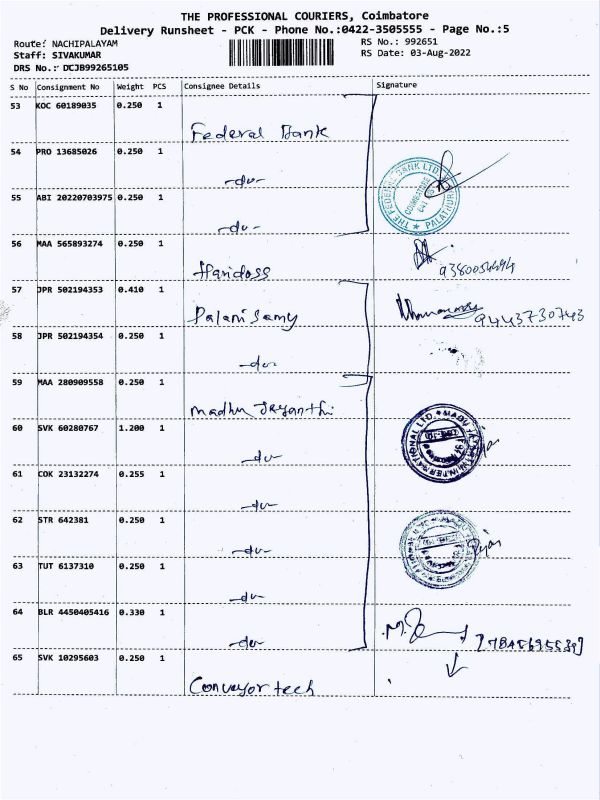 THE PROFESSIONAL COURIERS, Coimbatore
Delivery Runsheet - PCK - Phone No.:0422-3505555 - Page No.:5
Route: NACHIPALAYAM
Staff: SIVAKUMAR
DRS No.: DCJB99265105
RS No.: 992651
RS Date: 03-Aug-2022
S No Consignment No Weight PCS Consignee Details Signature
53 KOC 60189035 0.250 1
Federal Bank
54 PRO 13685026 0.250 1
-do-
THE FEDERAL BANK LTD.
COIMBATORE
PALATHURAI
55 ABI 20220703975 0.250 1
-do-
56 MAA 565893274 0.250 1
Haridoss
57 JPR 502194353 0.410 1
Palanisamy
9443730743
58 JPR 502194354 0.250 1
-do-
59 MAA 280909558 0.250 1
Madhu Jayanthi
60 SVK 60280767 1.200 1
-do-
INTERNATIONAL LTD.
61 COK 23132274 0.255 1
-do-
62 STR 642381 0.250 1
-do-
63 TUT 6137310 0.250 1
-do-
64 BLR 4450405416 0.330 1
-do-
65 SVK 10295603 0.250 1
Conveyor tech